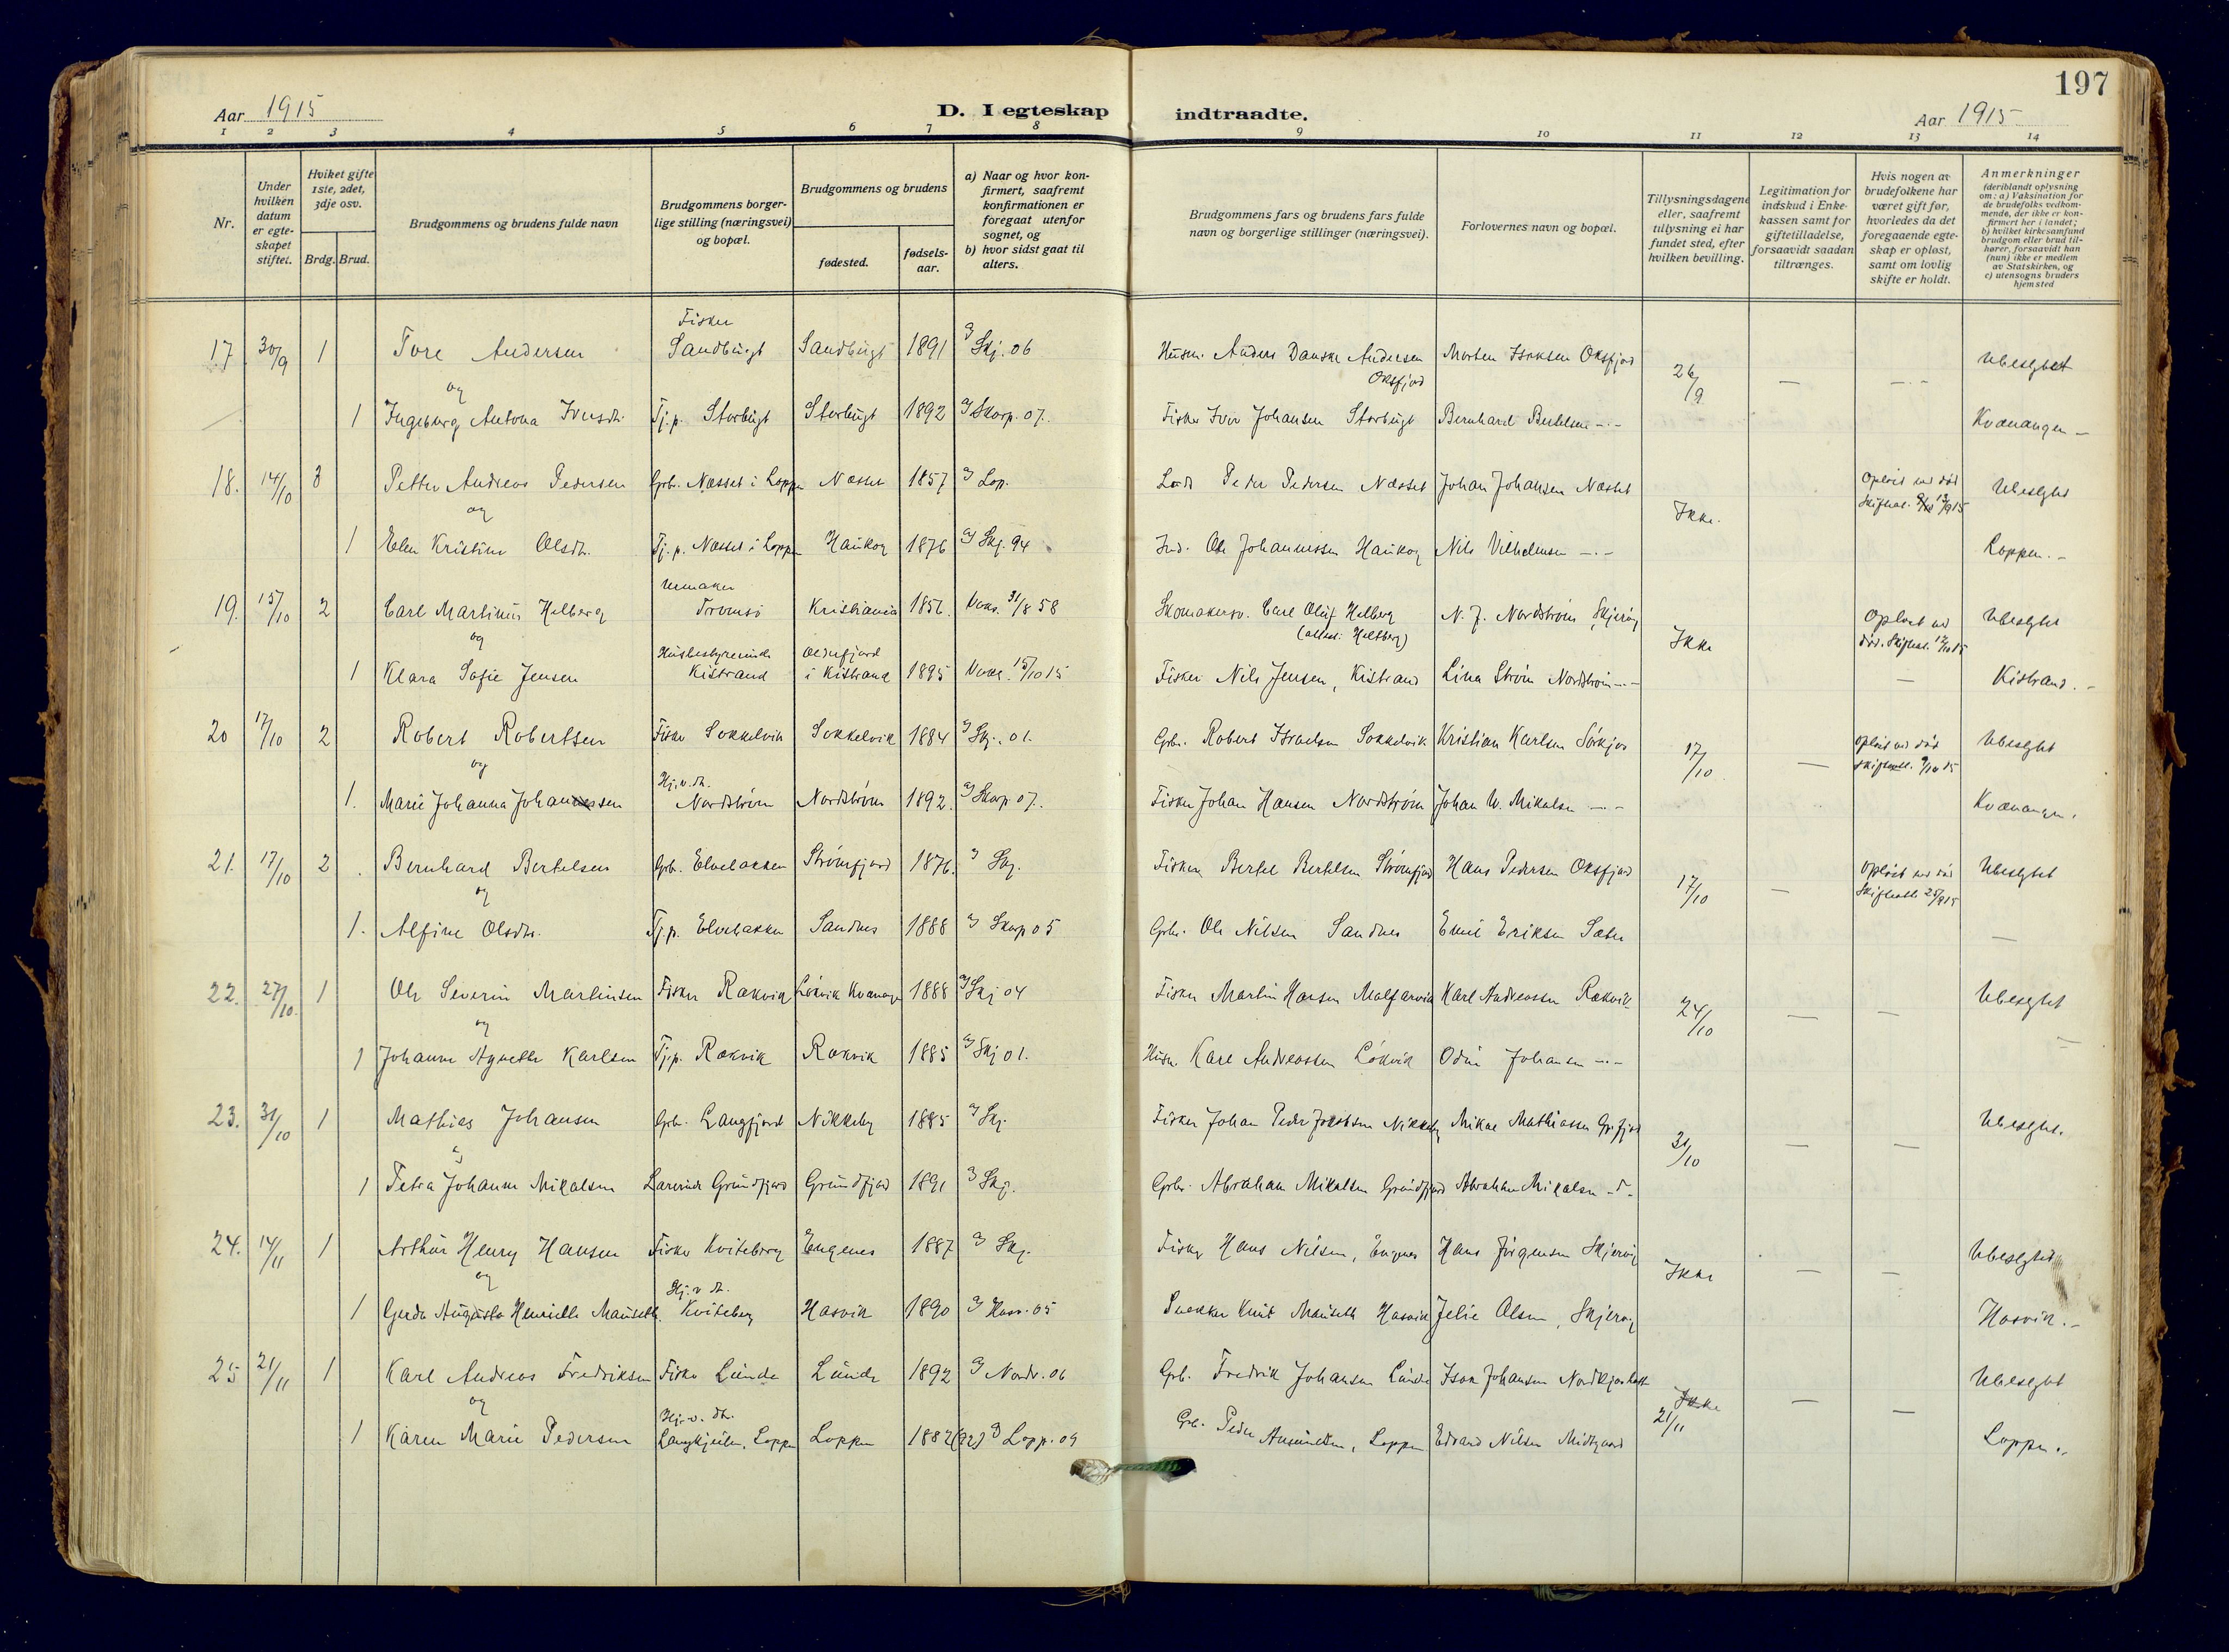 197
Aar 1915
D. I egteskap indtraadte.
Aar 1915
1 2 3 4 5 6 7 8 9 10 11 12 13 14
Nr.
Under hvilken datum er egteskapet stiftet.
Hviket gifte 1ste, 2det, 3dje osv.
Brdg. Brud.
Brudgommens og brudens fulde navn
Brudgommens borgerlige stilling (næringsvei) og bopæl.
Brudgommens og brudens
fødested.
fødselsaar.
a) Naar og hvor konfirmert, saafremt konfirmationen er foregaat utenfor sognet, og
b) hvor sidst gaat til alters.
Brudgommens fars og brudens fars fulde navn og borgerlige stillinger (næringsvei).
Forlovernes navn og bopæl.
Tillysningsdagene eller, saafremt tillysning ei har fundet sted, efter hvilken bevilling.
Legitimation for indskud i Enkekassen samt for giftetilladelse, forsaavidt saadan tiltrænges.
Hvis nogen av brudefolkene har været gift før, hvorledes da det foregaaende egteskap er opløst, samt om lovlig skifte er holdt.
Anmerkninger (deriblandt oplysning om: a) Vaksination for de brudefolks vedkommende, der ikke er konfirmert her i landet; b) hvilket kirkesamfund brudgom eller brud tilhører, forsaavidt han (hun) ikke er medlem av Statskirken, og c) utensogns bruders hjemsted
Fisker
17 30/9 1 Tore Andersen Sandbugt Sandbugt 1891 Skj. 06 Husm. Anders Danske Andersen Oksfjord Morten Isaksen Oksfjord 26/9 — — Ubeslegtet
og
1 Ingeborg Antona Iversdt. Tj.p. Storbugt Storbugt 1892 Skarp. 07. Fisker Iver Johansen Storbugt Bernhard Bertelsen -"- Kvænangen
18. 14/10 3 Petter Andreas Pedersen Grbr. Næsset i Loppen Næsset 1857 Lop. Peder Pedersen Næsset Johan Johansen Næsset Ikke. Opløst ved død Ubeslegtet
og
1 Elen Kristine Olsdt. Tj.p. Næsset i Loppen Haukøy 1876 Skj. 94 Ind. Ole Johannessen Haukøy Nils Vilhelmsen -"- Loppen.
Urmaker
19. 15/10 2 Carl Martinus Helberg Tromsø Kristiania 1856. Vaks. 31/8 58 Skomakersv. Carl Oluf Helberg N. J. Nordstrøm Skjervøy Ikke Opløst ved død. Skifteat. 12/10 15 Ubeslegtet
og
Husbestyrerinde
1 Klara Sofie Jensen Kistrand Oldefjord i Kistrand 1895 Vaks. 15/10 15 Fisker Nils Jensen, Kistrand Lina Strøm Nordstrøm -"- — Kistrand.
20 17/10 2 Robert Robertsen Fisker Sokkelvik Sokkelvik 1884 Skj. 01. Grbr. Robert Israelsen Sokkelvik Kristian Karlsen Sørkjos 17/10 — Opløst ved død Skifteatt. 9/10 15 Ubeslegtet
og
Hj.v.dt.
1. Marie Johanna Johansen Nordstrøm Nordstrøm 1892. Skarp 07. Fisker Johan Hansen Nordstrøm Johan U. Mikalsen -"- Kvænangen.
21. 17/10 2 Bernhard Bertelsen Grb. Elvebakken Strømfjord 1876. Skj. Fisker Bertel Bertelsen Strømfjord Hans Pedersen Oksfjord 17/10 — Opløst ved død Skifteatt. 25/9 15 Ubeslegtet
og
1. Alfine Olsdt. Tj.p. Elvebakken Sandnes 1888 Skarp 05 Grbr. Ole Nilsen Sandnes Emil Eriksen Sæter —
22. 27/10. 1 Ole Severin Martinsen Fisker Rakvik Løkvik Kvænangen 1888 Skj 04 Fisker Martin Hansen Malfarvik Karl Andreassen Rakvik 24/10 — — Ubeslegtet
og
1 Johanne Agnethe Karlsen Tj.p. Rakvik Rakvik 1885 Skj 01. Husm. Karl Andreassen Løkvik Odin Johansen -"- —
23. 31/10 1 Mathias Johansen Grbr. Langfjord Nikkeby 1885 Skj. Fisker Johan Peder Nikkeby Mikal Mathiassen 31/10 — — Ubeslegtet.
og
1 Petra Johanne Mikalsen Lærerinde Grundfjord Grundfjord 1891 Skj. Grbr. Abraham Mikalsen Grundfjord Abraham Mikalsen
24. 14/11 1 Arthur Henry Hansen Fisker Kviteberg Engenes 1887 Skj. Fisker Hans Nilsen, Engnes Hans Jørgensen Skjervøy Ikke — — Ubeslegtet
og
Hj.v dt.
1 Gerda Augusta Henriette Mauseth. Kviteberg Hasvik 1890 Hasv. 05 Snekker Knut Mauseth Hasvik Jelie Olsen, Skjervøy Hasvik.
25 21/11 1 Karl Andreas Fredriksen Fisker Lunde Lunde 1892 Nordr. 06 Grb. Fredrik Johansen Lunde Isak Johansen Ikke 21/11 — — Ubeslegtet
og
Hj.v. dt.
1 Karen Marie Pedersen Langkjeilen, Loppen Loppen 1882 (92) Lopp. 09 Grb. Peder Amundsen, Loppen Edvard Nilsen Midtgaard Loppen.